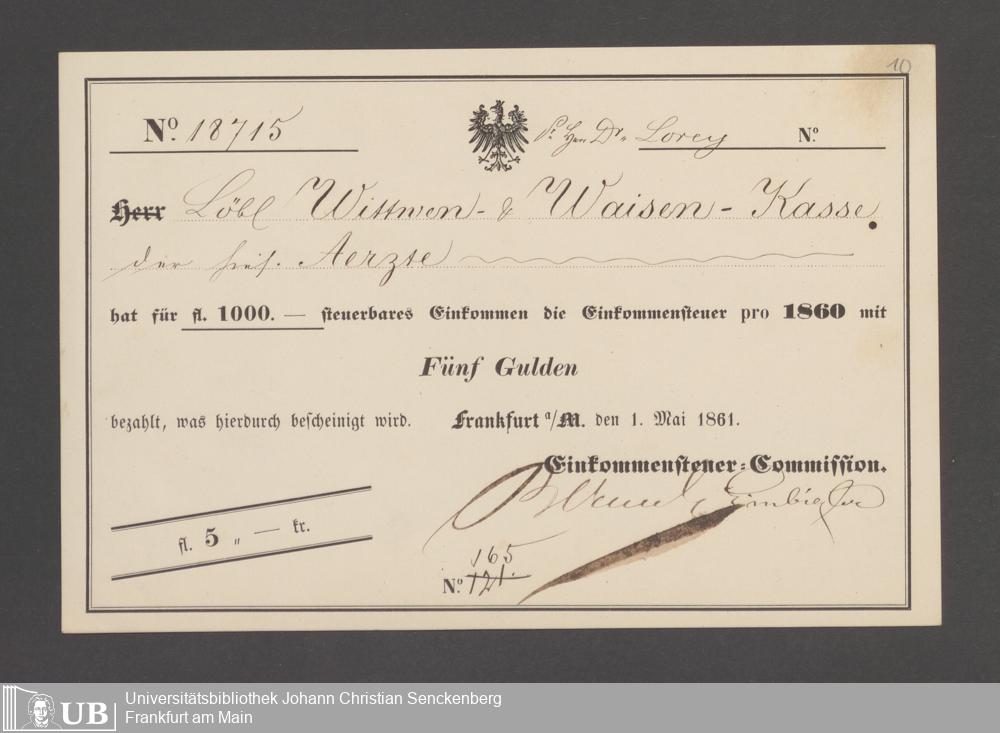 10
No. 18715
Pr. Hrn Dr. Lorey No.
Herr Löbl Wittwen- & Waisen-Kasse.
der hies. Aerzte
hat für fl. 1000. — steuerbares Einkommen die Einkommensteuer pro 1860 mit
Fünf Gulden
bezahlt, was hierdurch bescheinigt wird. Frankfurt a/M. den 1. Mai 1861.
Einkommensteuer-Commission.
fl. 5 „ — kr.
165
No. 121.
UB
Universitätsbibliothek Johann Christian Senckenberg
Frankfurt am Main